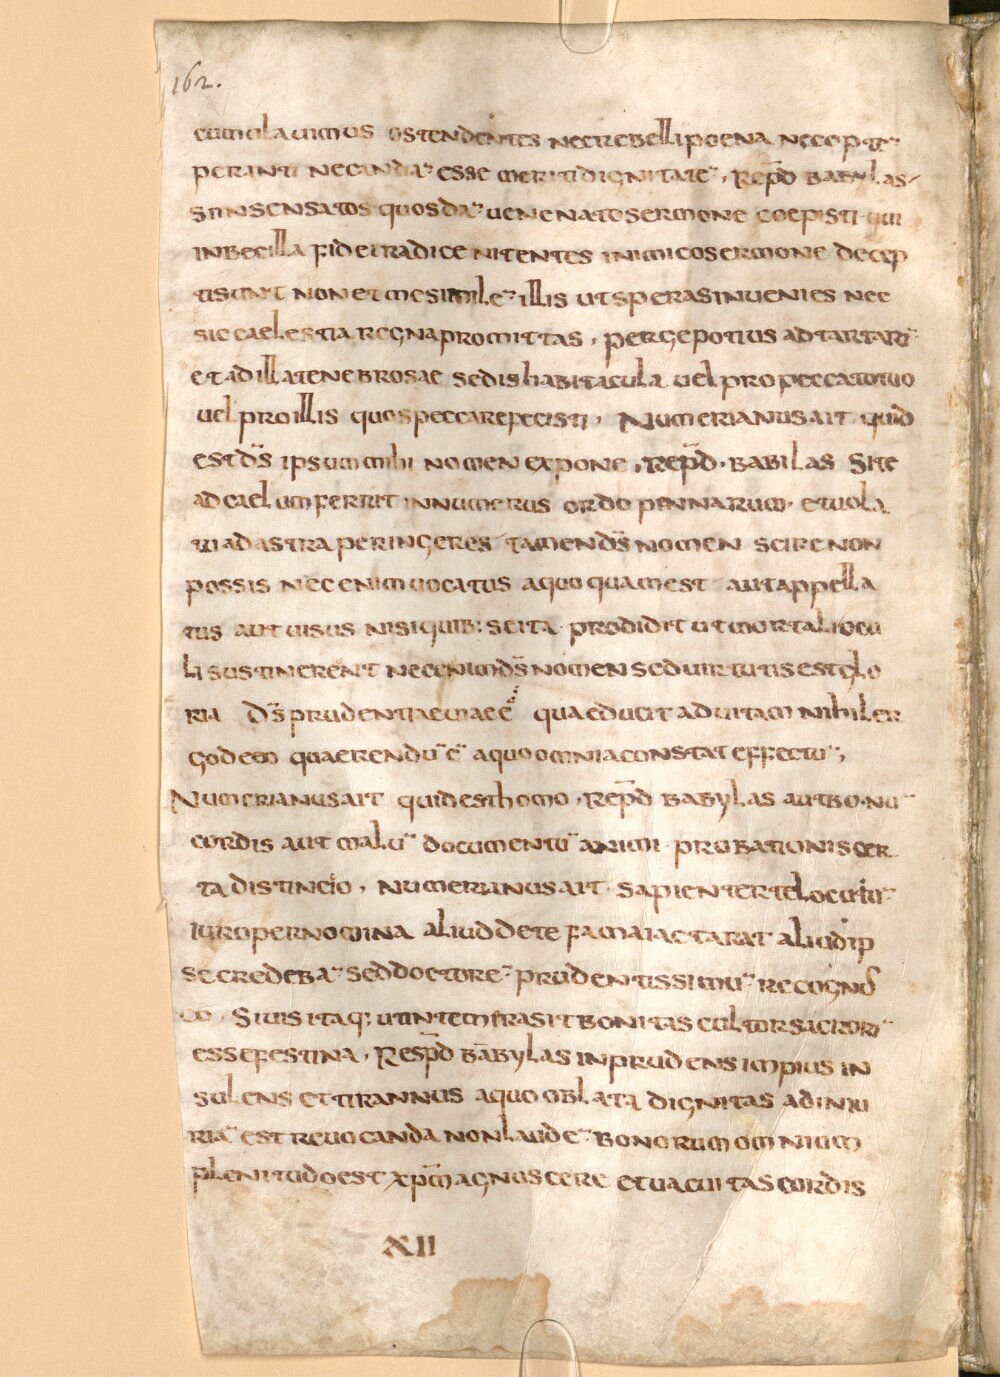 162.
cumulauimus ostendentes nec rebelli poena nec opti
perinti necanda͞ esse meriti dignitate͞, Resp̄d babylas
si insensatos quosda͞ uenenato sermone coepisti qui
inbecilla fidei radice nitentes inimico sermone decep
ti sunt non et me simile͞ illis ut speras inuenies nec
sic caelestia regna promittas, perge potius ad tartaru͞
et ad illa tenebrosae sedis habitacula uel pro peccato tuo
uel pro illis quos peccare fecisti, Numerianus ait quid
est d̄s ipsum mihi nomen expone, Resp̄d babilas Si te
ad caelum ferret innumerus ordo pennarum et uola
tu ad astra peringeres tamen d̄s nomen scire non
possis nec enim uocatus a quoquam est aut appella
tus aut uisus nisi quib: se ita prodidit ut mortali ocu
li sustinerent nec enim d̄s nomen sed uirtutis est glo
ria D̄s prudentiae uiae ē quae ducit ad uitam nihil er
go de eo quaerendu͞ ē a quo omnia constat effectu͞;
Numerianus ait quid est homo, Resp̄d babylas aut bonu͞
cordis aut malu͞ documentu͞ animi probationis cer
ta distinctio, numerianus ait sapienter te locutu͞
iuro per nomina aliud de te fama iactarat aliud ip
se credeba͞ sed doctore͞ prudentissimu͞ recognos
co, Si uis itaq; ut intemera sit bonitas cultor sacroru͞
esse festina, Resp̄d babylas inprudens impius in
sulens et tirannus a quo oblata dignitas ad iniu
ria͞ est reuocanda non laude͞ bonorum omnium
plenitudo est xp̄m agnoscere et uacuitas cordis
XII